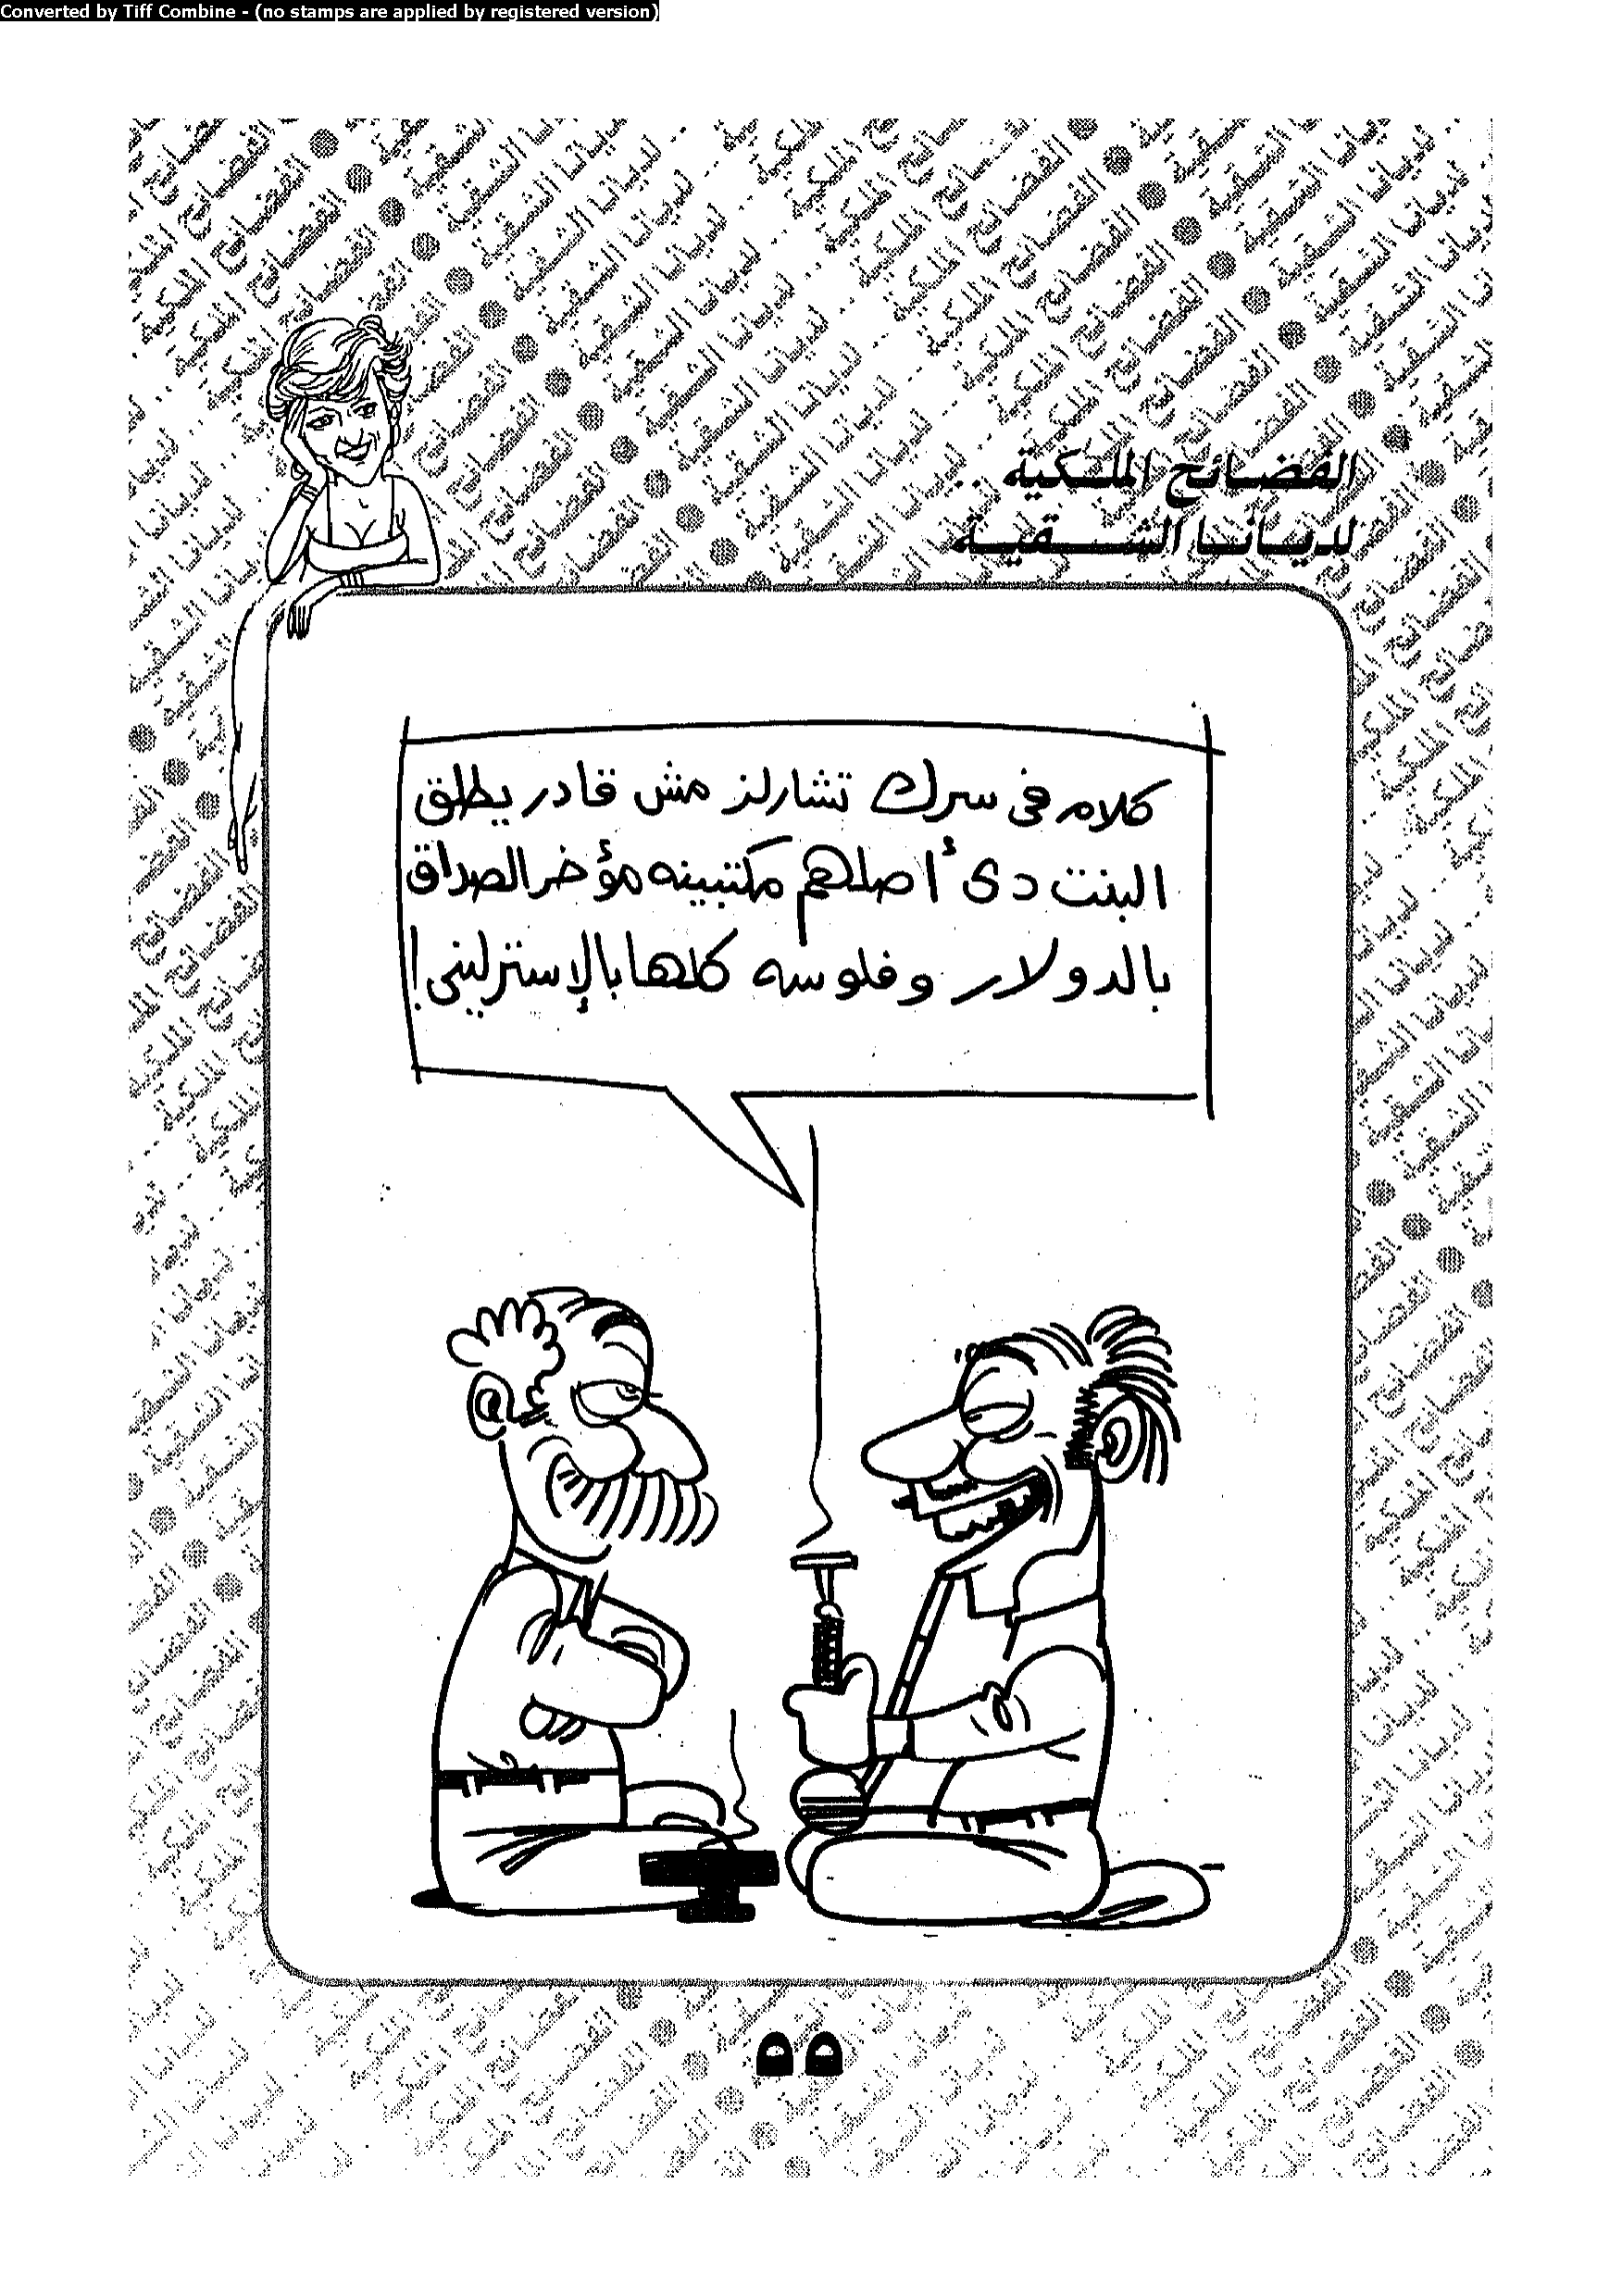 Converted by Tiff Combine - (no stamps are applied by registered version)
الفضائح الملكية ..
لديانا الشقية
كلام فى سرك تشارلز مش قادر يطلق
البنت دى أصلهم مكتبينه مؤخر الصداق
بالدولار وفلوسه كلها بالإسترلينى!
٥٥